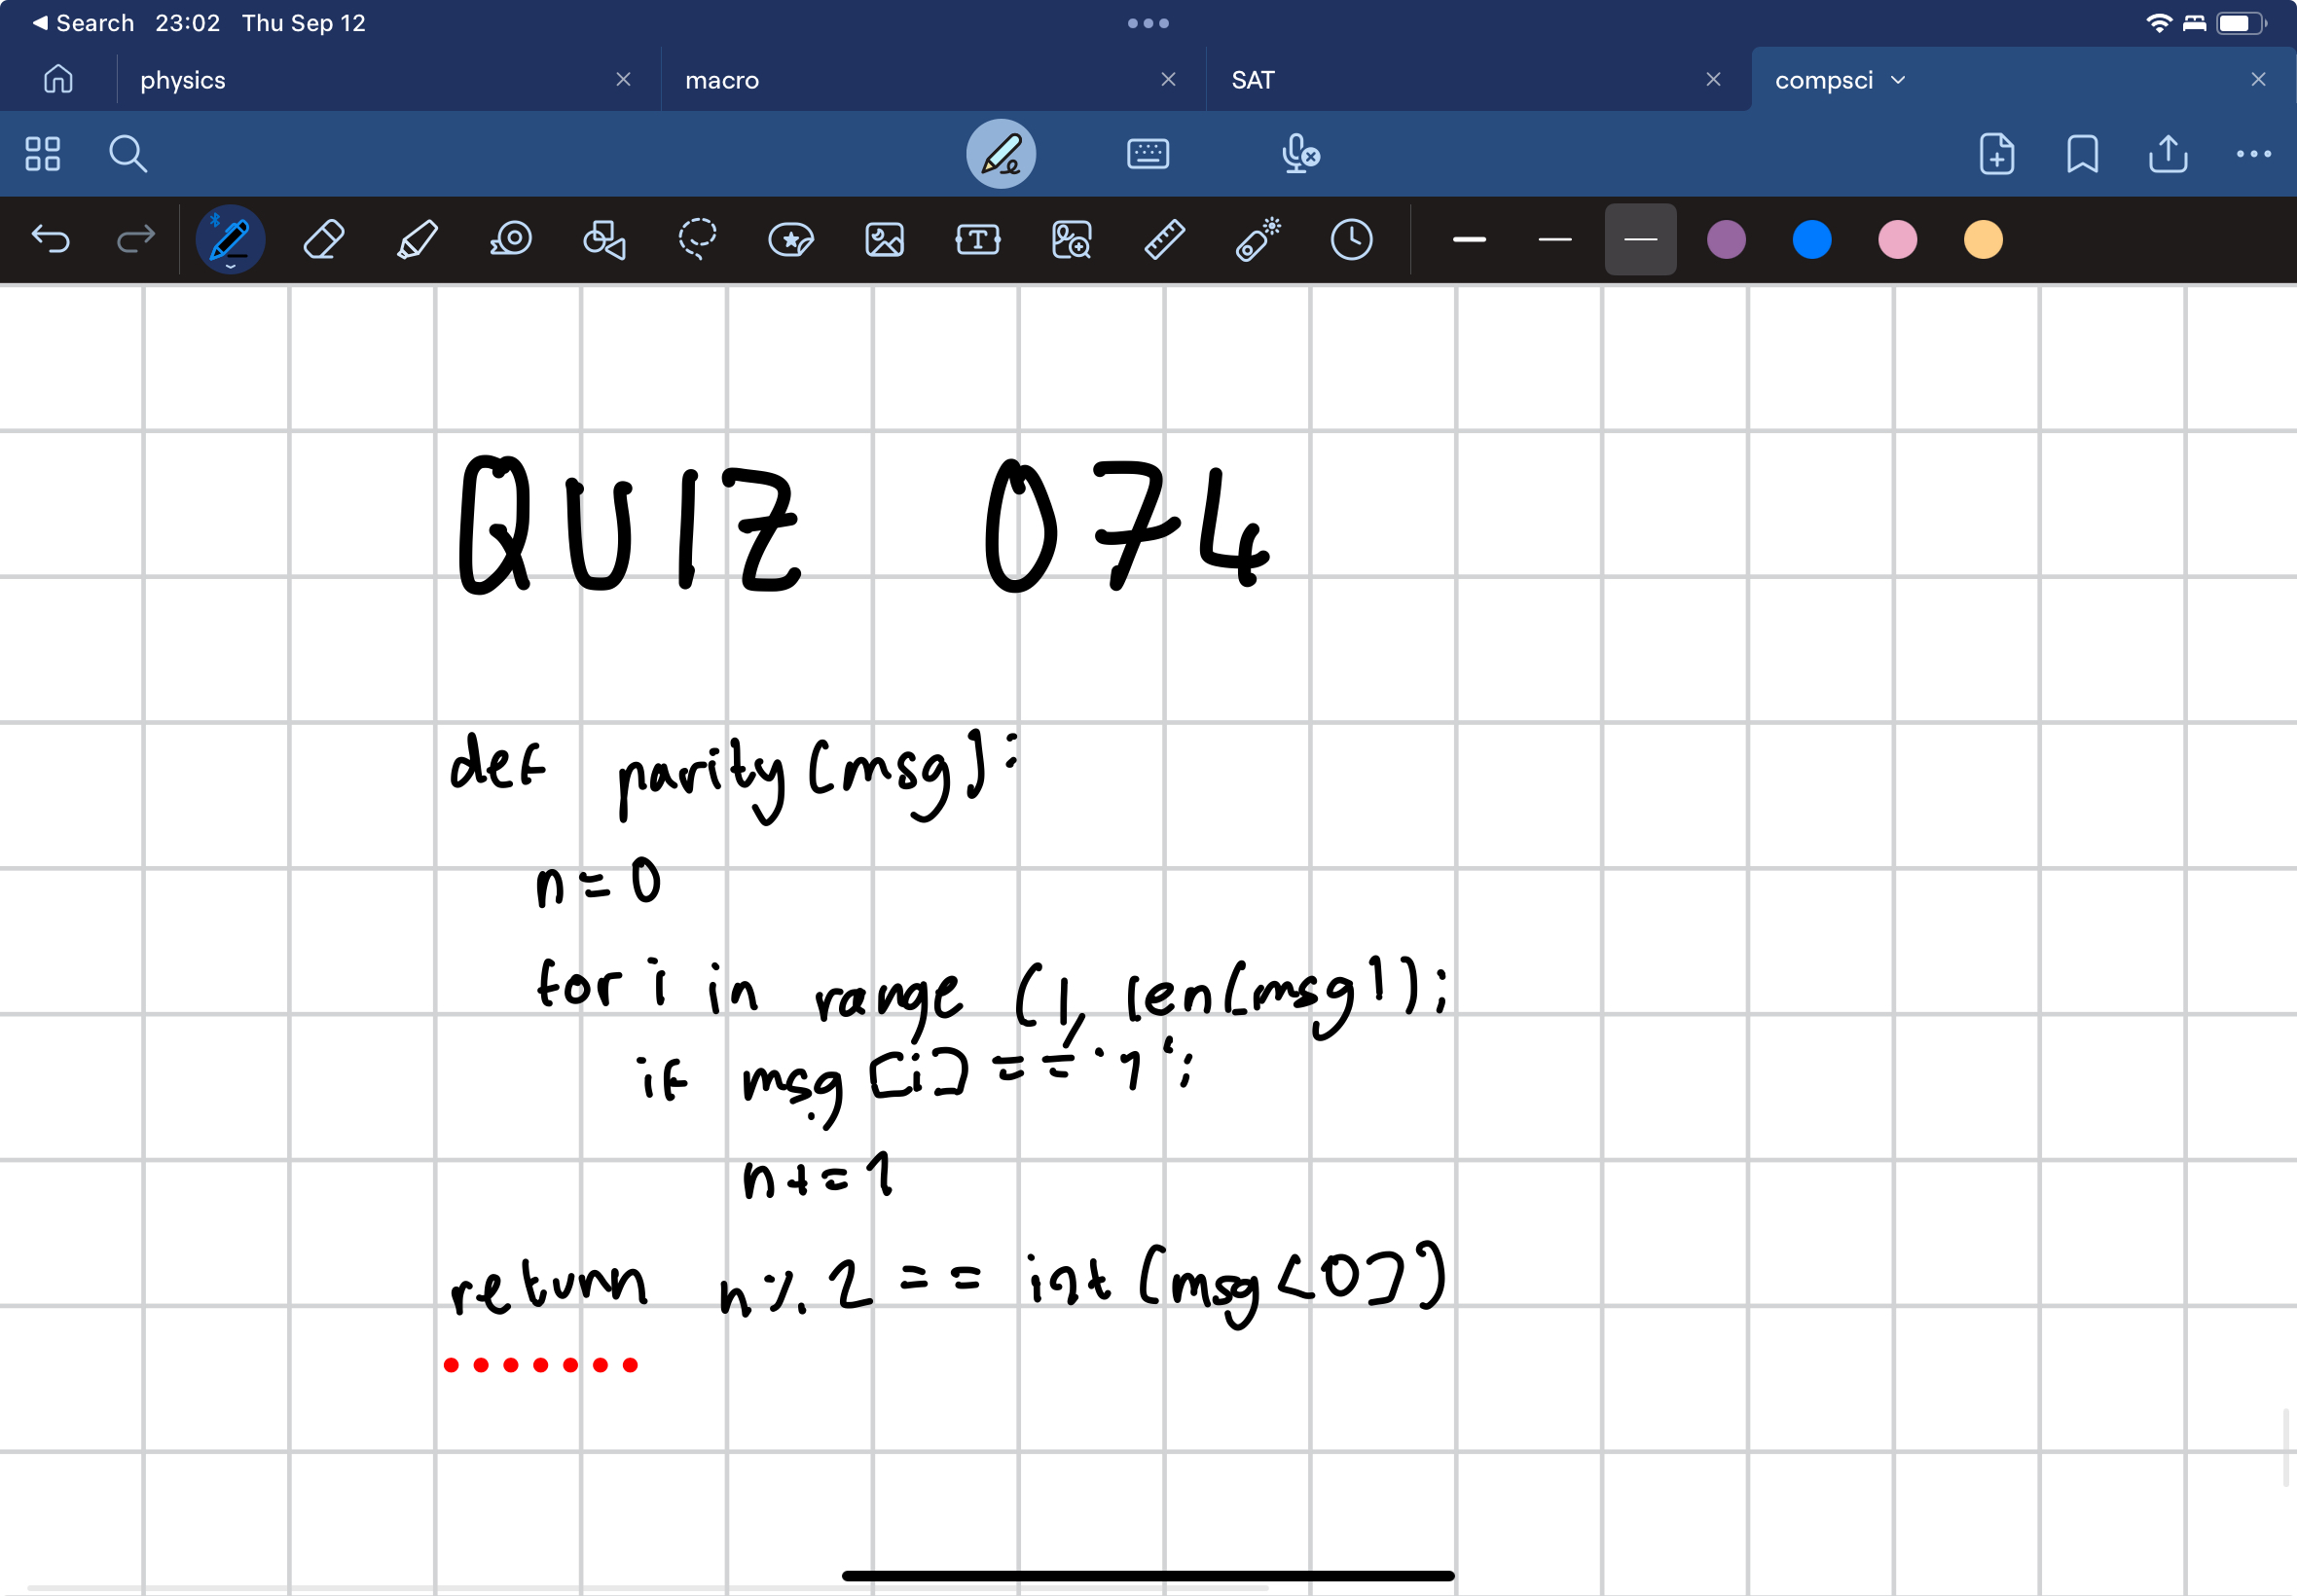 Search 23:02 Thu Sep 12
physics macro SAT compsci
QUIZ 074
def parity(msg):
n=0
for i in range (1, len(msg)):
if msg [i] == '1':
n+=1
return n% 2 == int (msg[0])